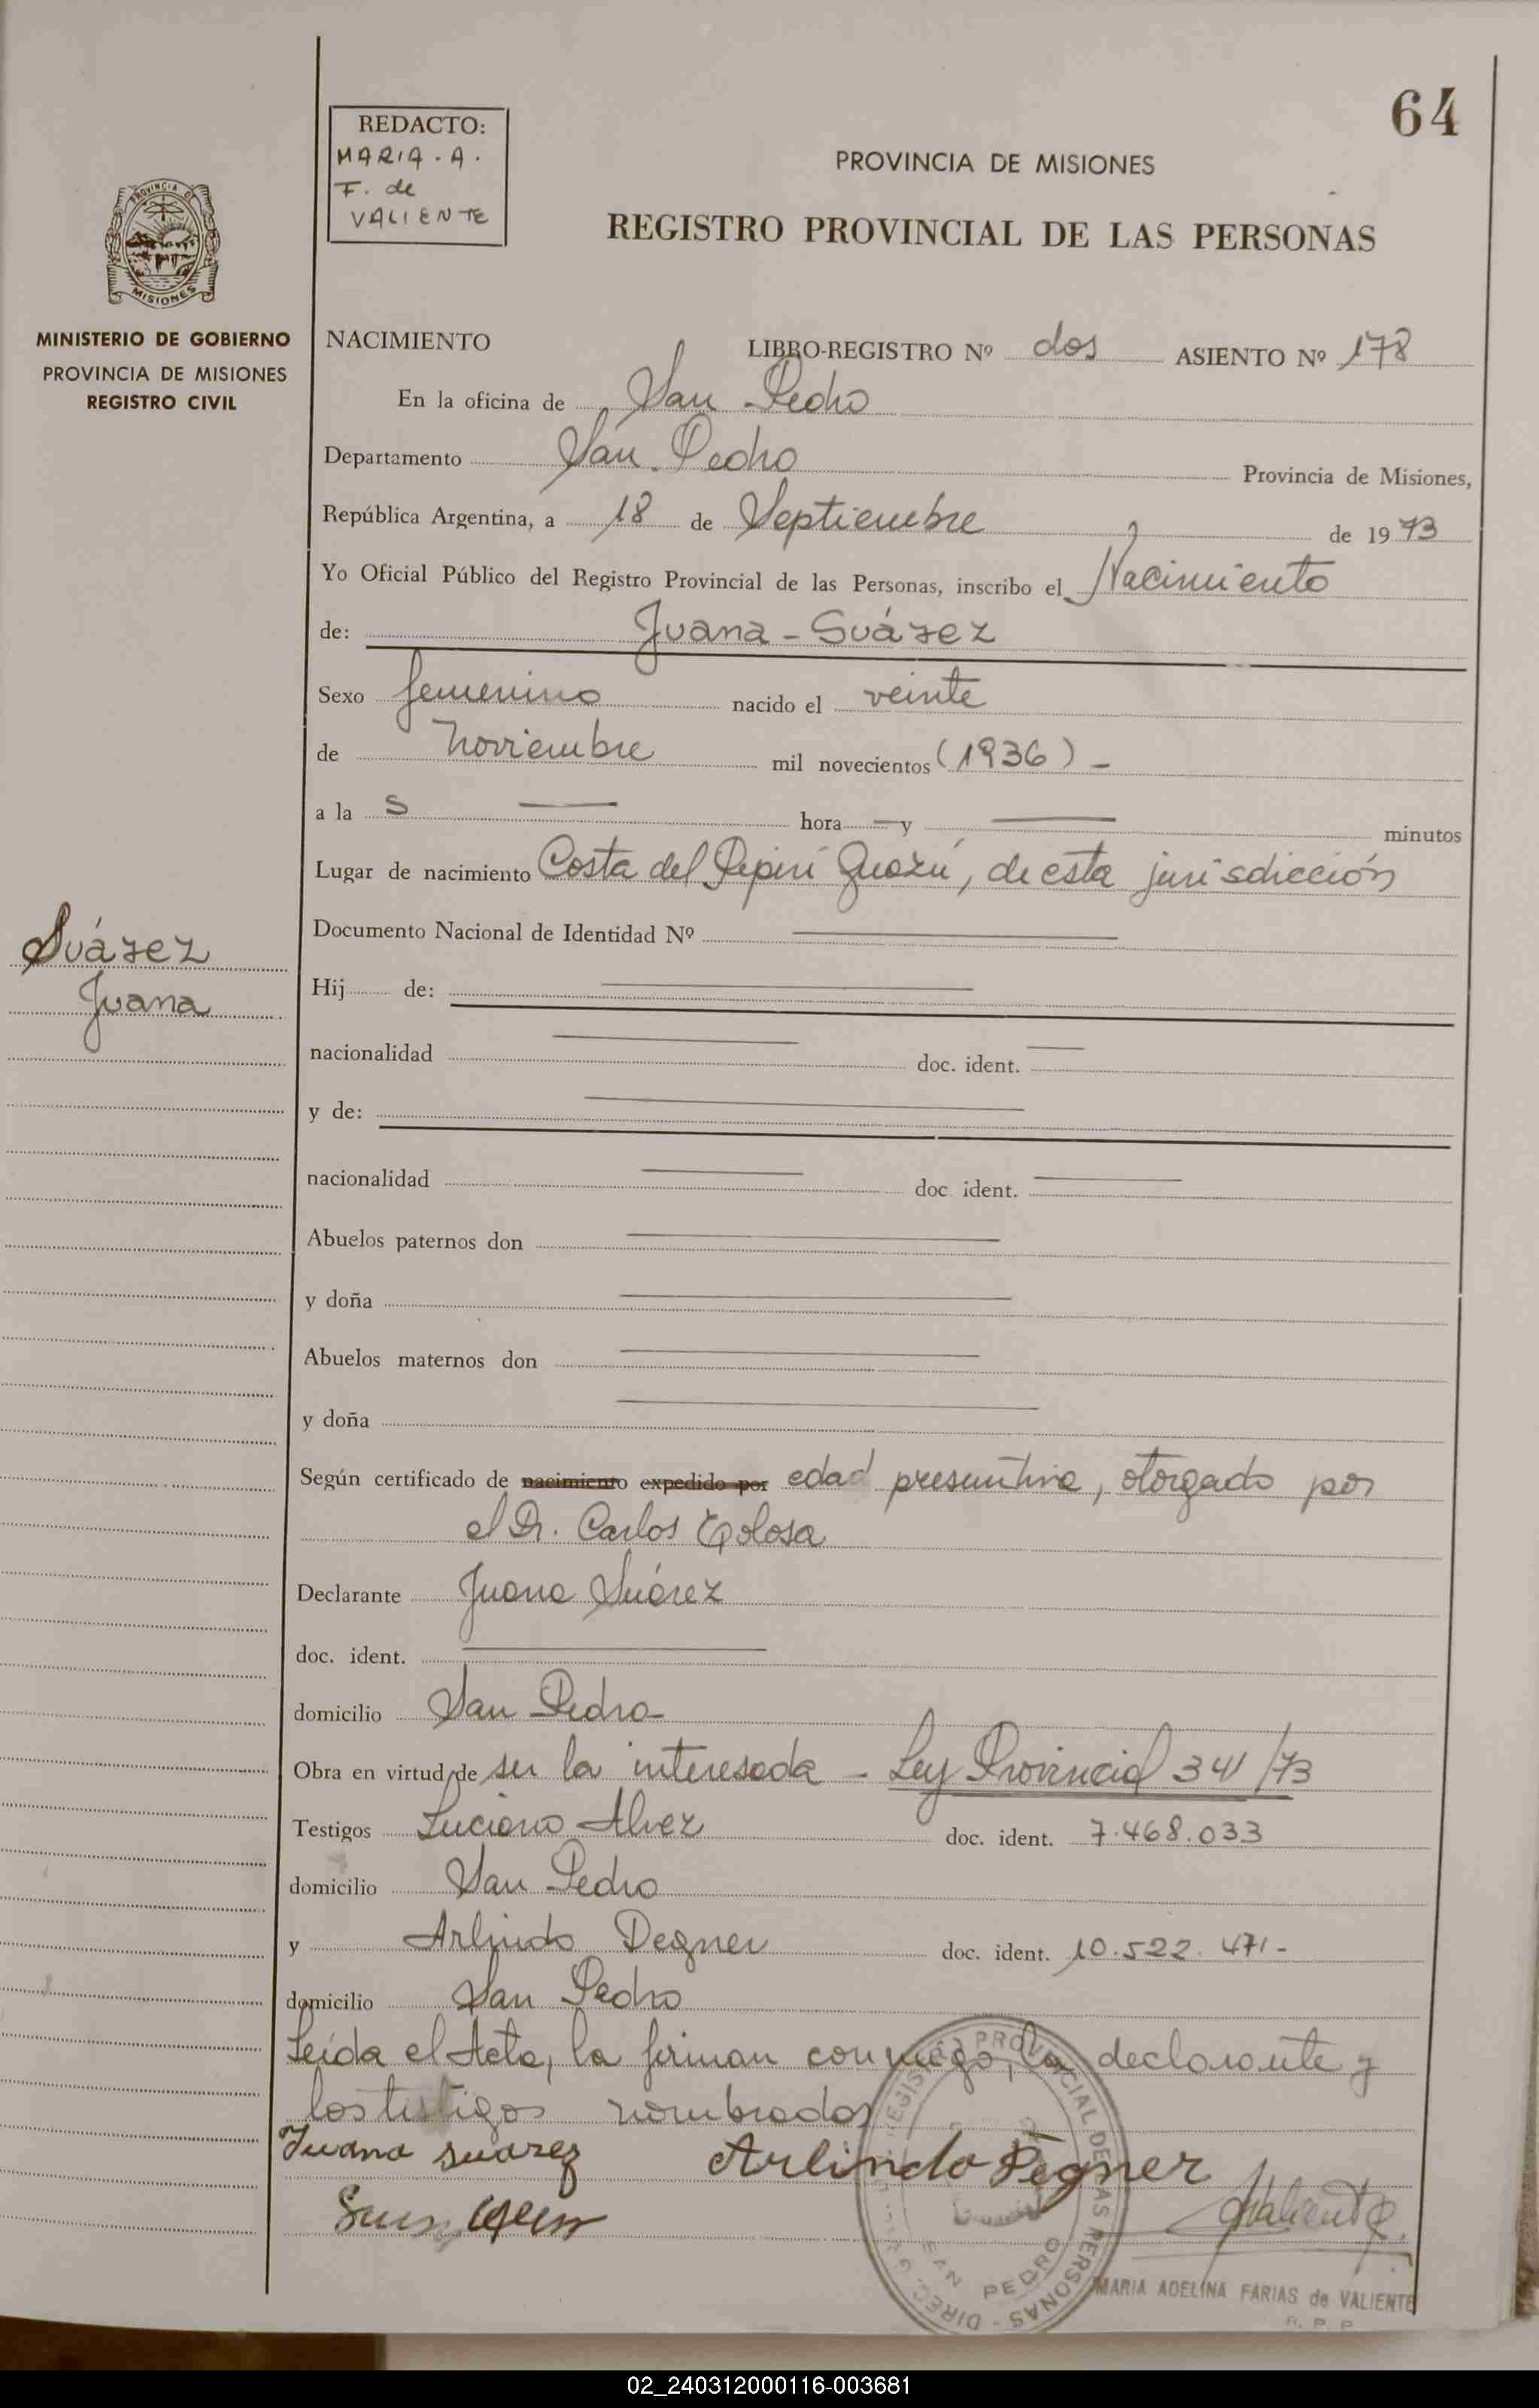 64
REDACTO:
MARIA - A.
F. de
VALIENTE
PROVINCIA DE MISIONES
REGISTRO PROVINCIAL DE LAS PERSONAS
PROVINCIA DE
MISIONES
MINISTERIO DE GOBIERNO
PROVINCIA DE MISIONES
REGISTRO CIVIL
NACIMIENTO LIBRO-REGISTRO Nº dos ASIENTO Nº 178
En la oficina de San Pedro
Departamento San Pedro Provincia de Misiones,
República Argentina, a 18 de Septiembre de 1973
Yo Oficial Público del Registro Provincial de las Personas, inscribo el Nacimiento
de: Juana - Suárez
Sexo femenino nacido el veinte
de noviembre mil novecientos (1936) -
a la s — hora — y — minutos
Lugar de nacimiento Costa del Pepirí Guazú, de esta jurisdicción
Suárez
Juana
Documento Nacional de Identidad Nº —
Hij de: —
nacionalidad — doc. ident. —
y de: —
nacionalidad — doc. ident. —
Abuelos paternos don —
y doña —
Abuelos maternos don —
y doña —
Según certificado de nacimiento expedido por edad presuntiva, otorgado por
el Dr. Carlos Tolosa
Declarante Juana Suárez
doc. ident. —
domicilio San Pedro -
Obra en virtud de ser la interesada - Ley Provincial 341/73
Testigos Luciano Alvez doc. ident. 7.468.033
domicilio San Pedro
y Arlindo Degner doc. ident. 10.522.471-
domicilio San Pedro
Leída el Acta, la firman conmigo, la declarante y
los testigos nombrados
Juana Suarez Arlindo Degner
Valiente
REGISTRO PROVINCIAL DE LAS PERSONAS
SAN PEDRO
MARIA ADELINA FARIAS de VALIENTE
R. P. P.
02_240312000116-003681